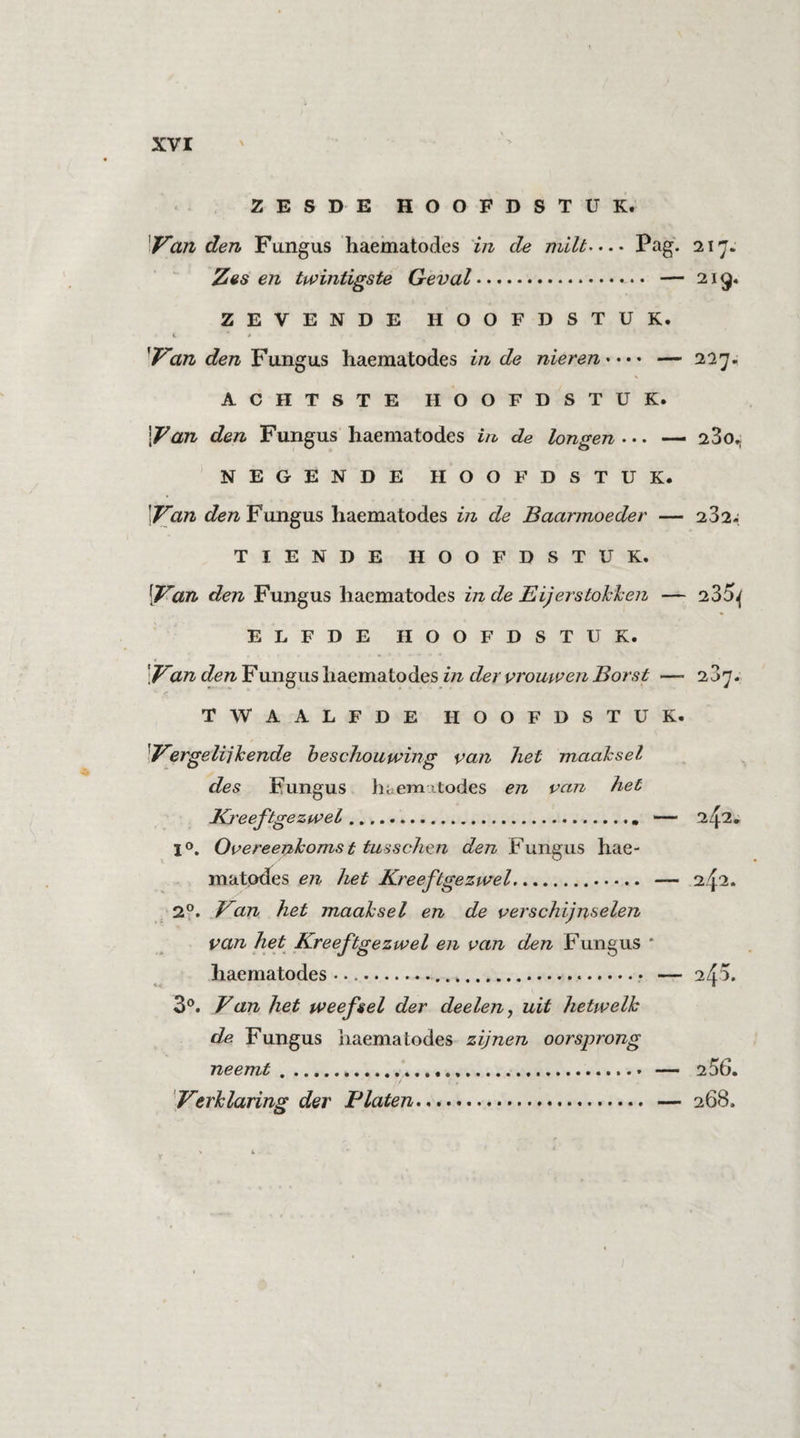 XVI
ZESDE HOOFDSTUK.
Van den Fungus haematodes in de milt.... Pag. 217.
Zes en twintigste Geval.................. — 219.
ZEVENDE HOOFDSTUK.
Van den Fungus haematodes in de nieren.... — 227.
ACHTSTE HOOFDSTUK.
Van den Fungus haematodes in de longen... — 230.
NEGENDE HOOFDSTUK.
Van den Fungus haematodes in de Baarmoeder — 232.
TIENDE HOOFDSTUK.
Van den Fungus haematodes in de Eijerstokken — 235.
ELFDE HOOFDSTUK.
Van den Fungus haematodes in der vrouwen Borst — 237.
TWAALFDE HOOFDSTUK.
Vergelijkende beschouwing van het maaksel
des Fungus haematodes en van het
Kreeftgezwel.............................. — 242.
1°. Overeenkomst tusschen den Fungus hae-
matodes en het Kreeftgezwel............. — 242.
2°. Van het maaksel en de verschijnselen
van het Kreeftgezwel en van den Fungus
haematodes............................. — 245.
3°. Van het weefsel der deelen, uit hetwelk
de Fungus haematodes zijnen oorsprong
neemt.................................. — 256.
Verklaring der Platen........................ — 268.